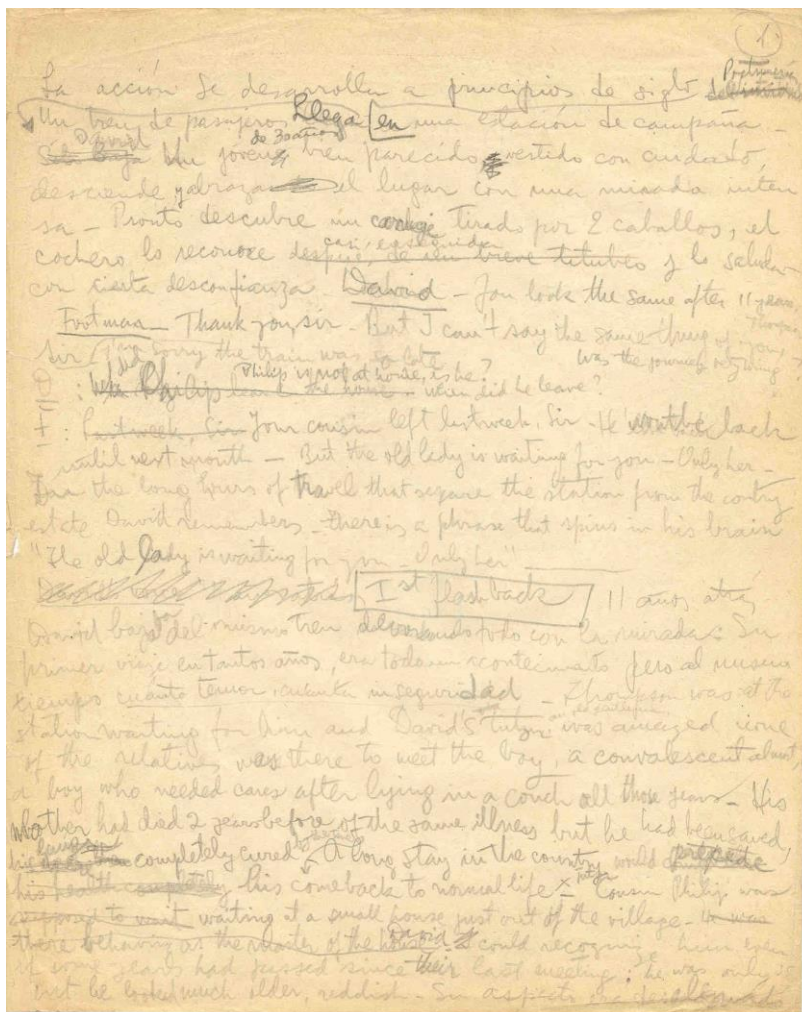 1
La acción se desarrolla a principios de siglo
Un tren de pasajeros llega en una estación de campaña -
David de 30 años
Un joven bien parecido vestido con cuidado,
desciende y abraza el lugar con una mirada inten
sa - Pronto descubre un carruaje tirado por 2 caballos, el
casi enseguida
cochero lo reconoce después de un breve titubeo y lo saluda
con cierta desconfianza David - You look the same after 11 years,
Thompson
Footman - Thank you sir - But I can't say the same thing of you -
Sir Sorry the train was so late was the journey
D: Philip is not at home, is he? when did he leave?
F: Last week, Sir Your cousin left last week, Sir - He won't be back
until next month - But the old lady is waiting for you - Only her -
the long hours of travel that separe the station from the contry
estate David remembers - there is a phrase that spins in his brain
"The old lady is waiting for you - Only her"
1st flash back 11 años atrás
David baja del mismo tren devorando todo con la mirada: Su
primer viaje en tantos años, era todo un acontecimiento pero al mismo
tiempo cuánto temor, cuánta inseguridad - Thompson was at the
station waiting for him and David's tutor was amazed none
of the relatives was there to meet the boy, a convalescent almost,
a boy who needed cares after lying in a couch all those years - His
mother had died 2 years before of the same illness but he had been saved,
completely cured A long stay in the country would
his health completely his comeback to normal life - Cousin Philip was
supposed to wait waiting at a small house just out of the village - It was
there behaving as the master of the house David could recognize him even
if some years had passed since their last meeting: he was only
but he looked much older, reddish - Su aspecto era